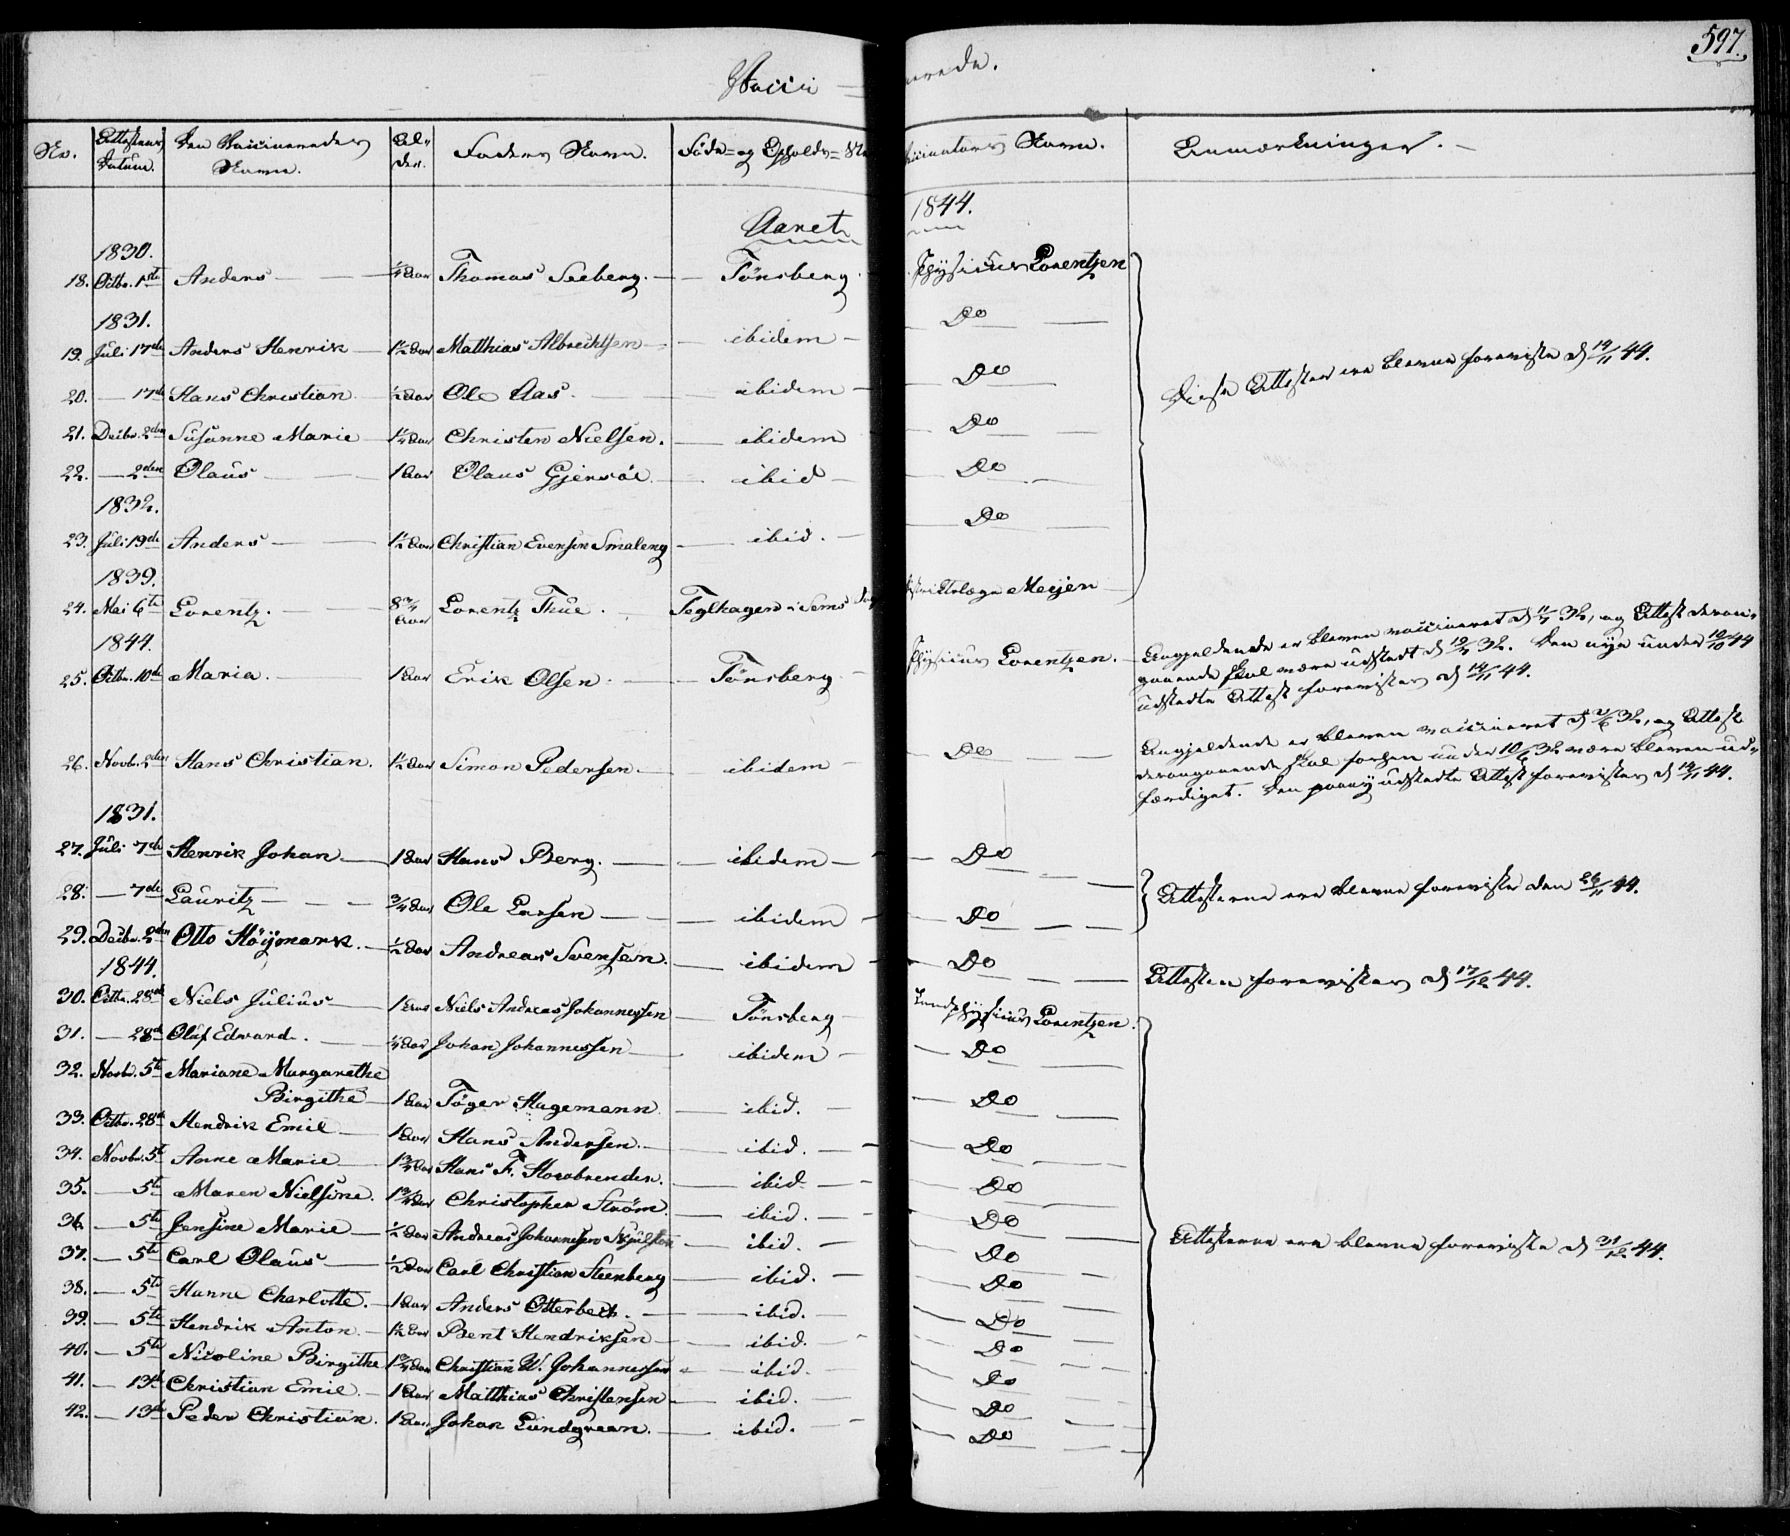 Vacci = nerede. 597.
No. Attestens Datum. Den Vaccineredes Navn. Al- der. Faders Navn. Føde- og Opholds-St Vaccinators Navn. Anmærkninger.
Aaret 1844.
1830.
18. Octbr. 1ste Anders ¼ Aar Thomas Seeberg. Tønsberg. Physicus Lorentzen
1831.
19. Juli 17de Anders Henrik 1½ Aar Matthias Albrechtsen ibidem Do
20. — 17de Hans Christian ½ Aar Ole Aas. ibidem Do Disse Attester ere blevne foreviste d 14/11 44.
21. Decbr. 2den Susanne Marie 1¼ Aar Christen Nielsen. ibidem Do
22. — 2den Olaus 1 Aar Olaus Gjersøe ibid Do
1832.
23. Juli 19de Anders 1½ Aar Christian Evensen Smaleng ibid. Do
1839.
24. Mai 6te Lorentz. 8¾ Aar Lorentz Thue. Teglhagen i Sems Districtslæge Meyer
1844.
25. Octbr. 10de Maria. 1 Aar Erik Olsen. Tønsberg Physicus Lorentzen. Angjeldende er bleven vaccineret d 11/7 32, og Attest deron-
gaaende skal være udstedt d 19/7 32. Den nye under 10/10 44
udstedte Attest forevistes d 14/11 44.
26. Novbr. 2den Hans Christian. 1½ Aar Simon Pedersen. ibidem Do Angjeldende er bleven vaccineret d 2/6 32, og Attest
derongaaende skal forhen under 10/6 32 være bleven ud-
færdiget. Den paany udstedte Attest forevistes d 14/11 44.
1831.
27. Juli 7de Henrik Johan 1 Aar Hans Berg. ibidem Do
28. — 7de Lauritz ¾ Aar Ole Larsen ibidem Do Attesterne ere blevne foreviste den 26/11 44.
29. Decbr. 2den Otto Høymark. ½ Aar Andreas Svensen. ibidem Do Attesten forevistes d 17/12 44.
1844.
30. Octbr. 28de Niels Julius 1 Aar Niels Andreas Johannessen Tønsberg Landphysicus Lorentzen.
31. — 28de Oluf Edward. ¼ Aar Johan Johannessen ibidem Do
32. Novbr. 5te Mariane Margarethe
Birgithe 1 Aar Tøger Hagemann ibid. Do
33. Octbr. 28de Hendrik Emil 1 Aar Hans Andersen. ibid. Do
34. Novbr. 5te Anne Marie 1¾ Aar Hans F. Horobrenden. ibid. Do
35. — 5te Maren Nielsine. 1¾ Aar Christopher Strøm. ibid. Do
36. — 5te Jensine Marie ½ Aar Andreas Johannesen Skjelston ibid. Do Attesterne ere blevne foreviste d 31/12 44.
37. — 5te Carl Olaus ½ Aar Carl Christian Steenberg ibid. Do
38. — 5te Hanne Charlotte. 1 Aar Anders Otterbech. ibid. Do
39. — 5te Hendrik Anton. 1¼ Aar Bent Hendriksen ibid. Do
40. — 5te Nicoline Birgithe 1¾ Aar Christian W. Johannessen ibid. Do
41. — 13de Christian Emil. 1 Aar Matthias Christensen ibid. Do
42. — 13de Peder Christian. 1 Aar Johan Lundgreen. ibid. Do
Do